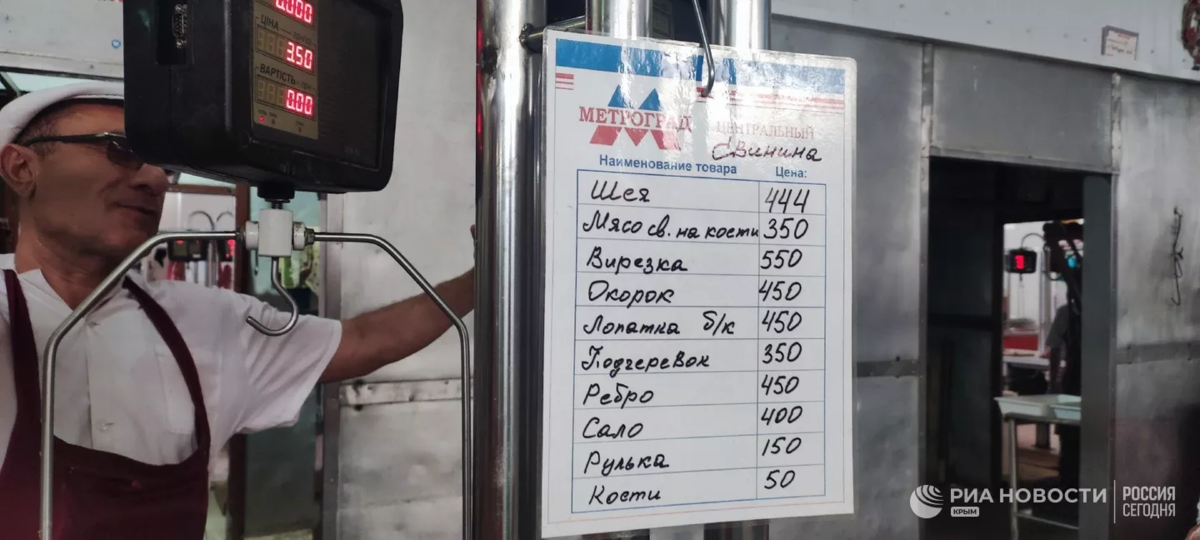 0.000
ЦІНА
3.50
ВАРТІСТЬ
0.00
МЕТРОГРАД
ЦЕНТРАЛЬНЫЙ
Свинина
Наименование товара Цена:
Шея 444
Мясо св. на кости 350
Вирезка 550
Окорок 450
Лопатка б/к 450
Подчеревок 350
Ребро 450
Сало 400
Рулька 150
Кости 50
РИА НОВОСТИ
КРЫМ
РОССИЯ
СЕГОДНЯ